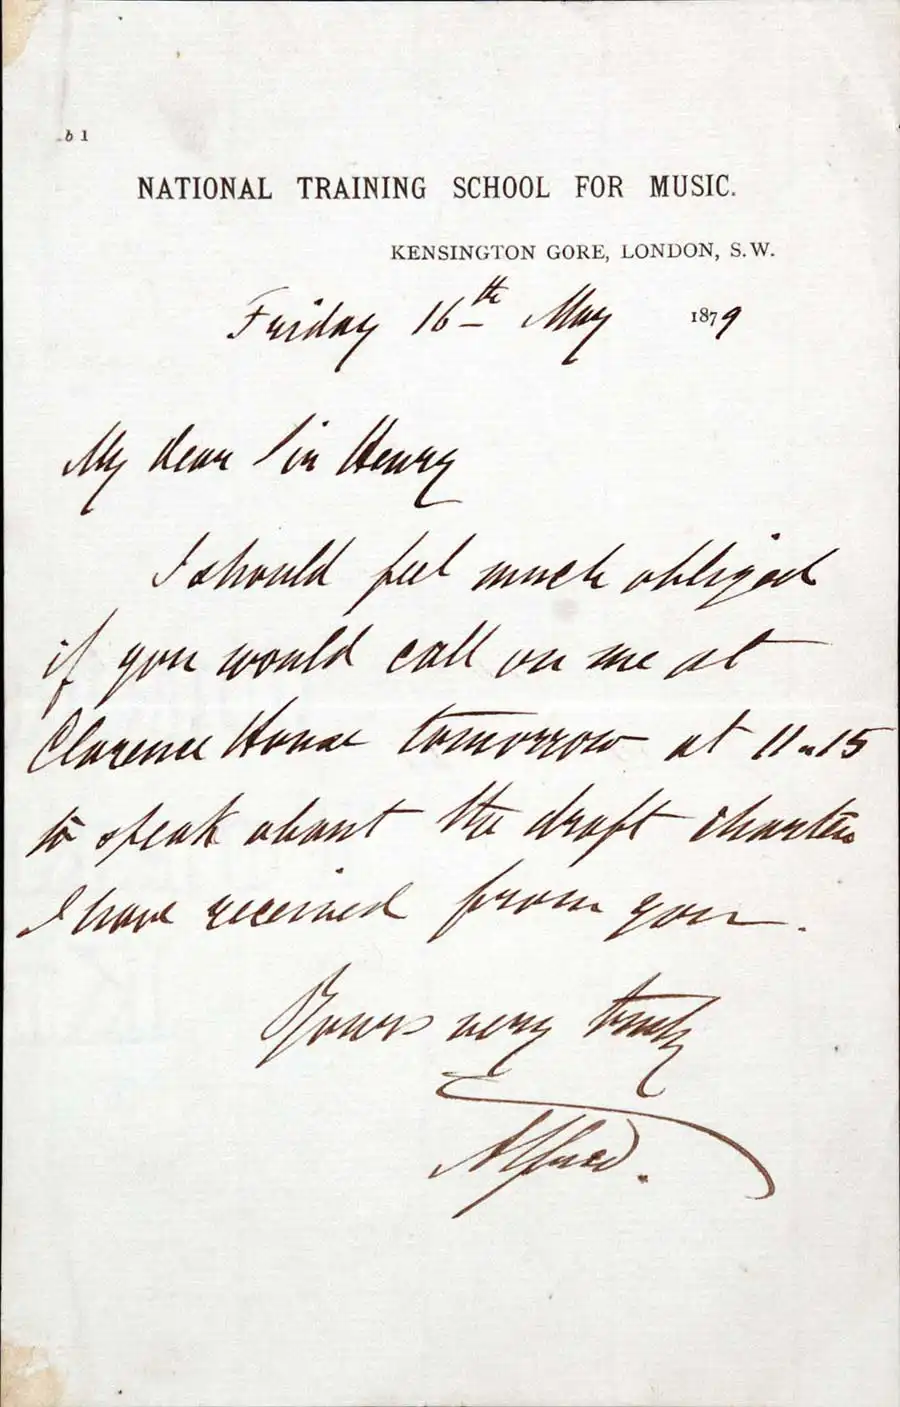 b 1
NATIONAL TRAINING SCHOOL FOR MUSIC.
KENSINGTON GORE, LONDON, S.W.
Friday 16th May 1879
My dear Sir Henry
I should feel much obliged
if you would call on me at
Clarence House tomorrow at 11.15
to speak about the draft charter
I have received from you.
Yours very truly
Alfred.